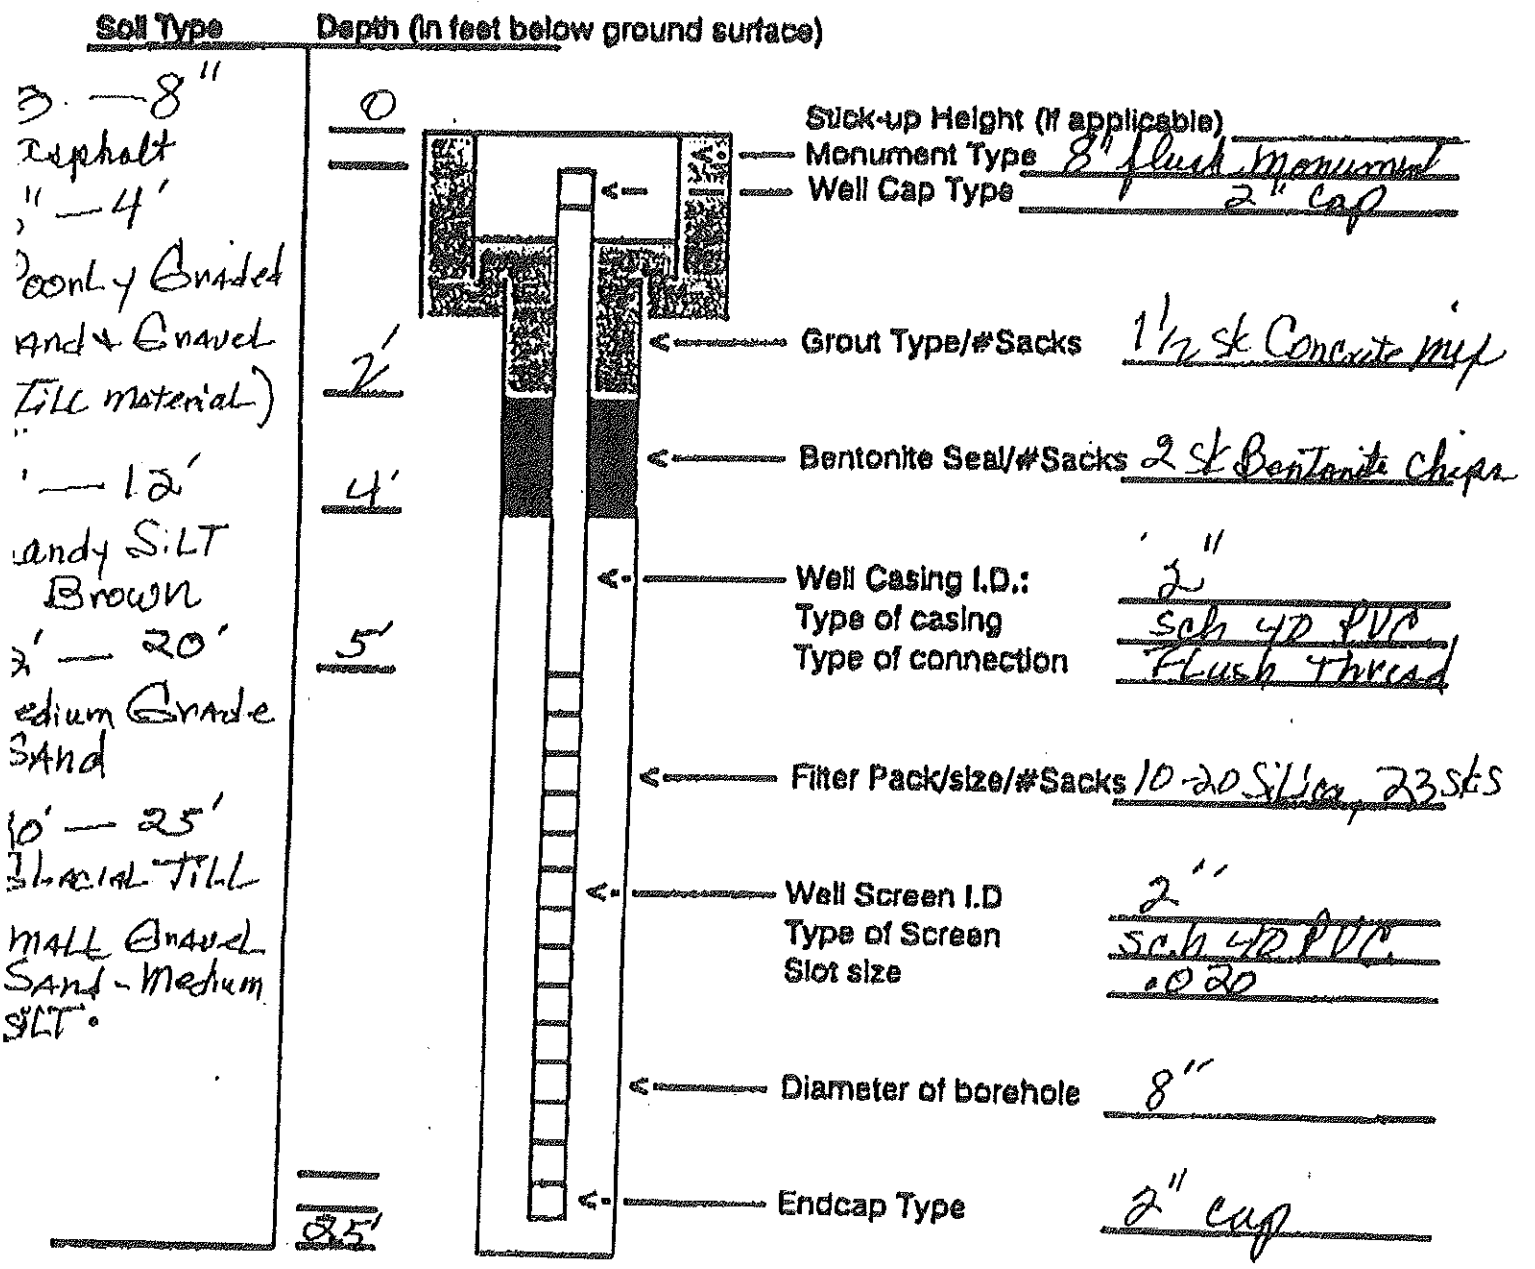 Soil Type
Depth (in feet below ground surface)
— 8"
— 4'
Graded
Gravel
material)
— 12'
SILT
Brown
— 20'
Grade
SAnd
— 25'
TILL
GrAvel
SAnd - Medium
SILT.
0
2'
4'
5'
25'
Stick-up Height (if applicable)
Monument Type 8" flush monument
Well Cap Type 2" cap
Grout Type/#Sacks 1 1/2 sk Concrete mix
Bentonite Seal/#Sacks 2 sk Bentonite Chips
Well Casing I.D.: 2"
Type of casing sch 40 PVC
Type of connection FLush Thread
Filter Pack/size/#Sacks 10-20 Silica, 23 sks
Well Screen I.D 2"
Type of Screen sch 40 PVC
Slot size .020
Diameter of borehole 8"
Endcap Type 2" cap